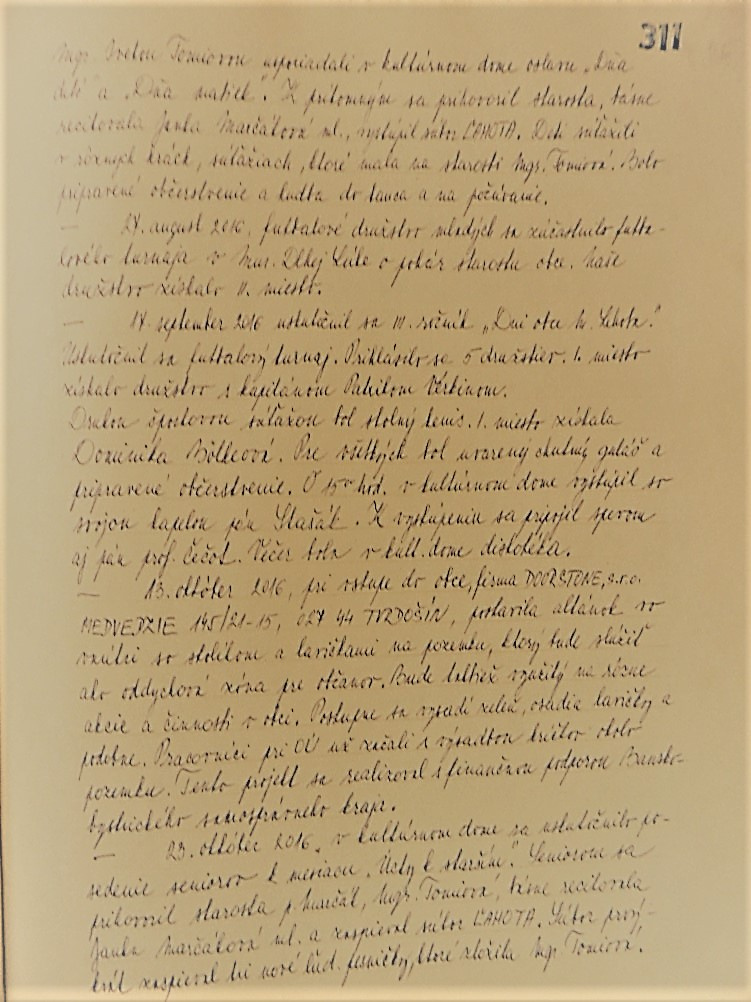 311
Mgr. Ivetou Tomiovou usporiadali v kultúrnom dome oslavu „Dňa
detí" a „Dňa matiek". K prítomným sa prihovoril starosta, básne
recitovala Janka Marčáková ml., vystúpil súbor ĽAHOTA. Deti súťažili
v rôznych hrách, súťažiach, ktoré mala na starosti Mgr. Tomiová. Bolo
pripravené občerstvenie a hudba do tanca a na počúvanie.
— 27. august 2016, futbalové družstvo mladých sa zúčastnilo futba-
lového turnaja v Mur. Dlhej Lúke o pohár starostu obce. Naše
družstvo získalo II. miesto.
— 17. september 2016 uskutočnil sa III. ročník „Dni obce M. Lehota."
Uskutočnil sa futbalový turnaj. Prihlásilo sa 5 družstiev. 1. miesto
získalo družstvo s kapitánom Patrikom
Druhou športovou súťažou bol stolný tenis. 1. miesto získala
Dominika Bölkeová. Pre všetkých bol uvarený chutný guláš a
pripravené občerstvenie. O 15 hod. v kultúrnom dome vystúpil so
svojou kapelou pán Stašák. K vystúpeniu sa pripojil spevom
aj pán prof. Čečot. Večer bola v kult. dome diskotéka.
— 13. október 2016, pri vstupe do obce, firma DOORSTONE, s.r.o.
MEDVEDZIE 145/21-15, 027 44 TVRDOŠÍN, postavila altánok vo
vnútri so stolíkom a lavičkami na pozemku, ktorý bude slúžiť
ako oddychová zóna pre občanov. Bude taktiež využitý na rôzne
akcie a činnosti v obci. Postupne sa vysadí zeleň, osadia lavičky a
podobne. Pracovníci pri OÚ už začali s výsadbou kríčkov okolo
pozemku. Tento projekt sa realizoval s finančnou podporou Bansko-
bystrického samosprávneho kraja.
— 23. október 2016, v kultúrnom dome sa uskutočnilo po-
sedenie seniorov k mesiacu „Úcty k starším". Seniorom sa
prihovoril starosta p. Marčák, Mgr. Tomiová, básne recitovala
Janka Marčáková ml. a zaspieval súbor ĽAHOTA. Súbor prvý-
krát zaspieval tri nové ľud. pesničky, ktoré zložila Mgr. Tomiová.